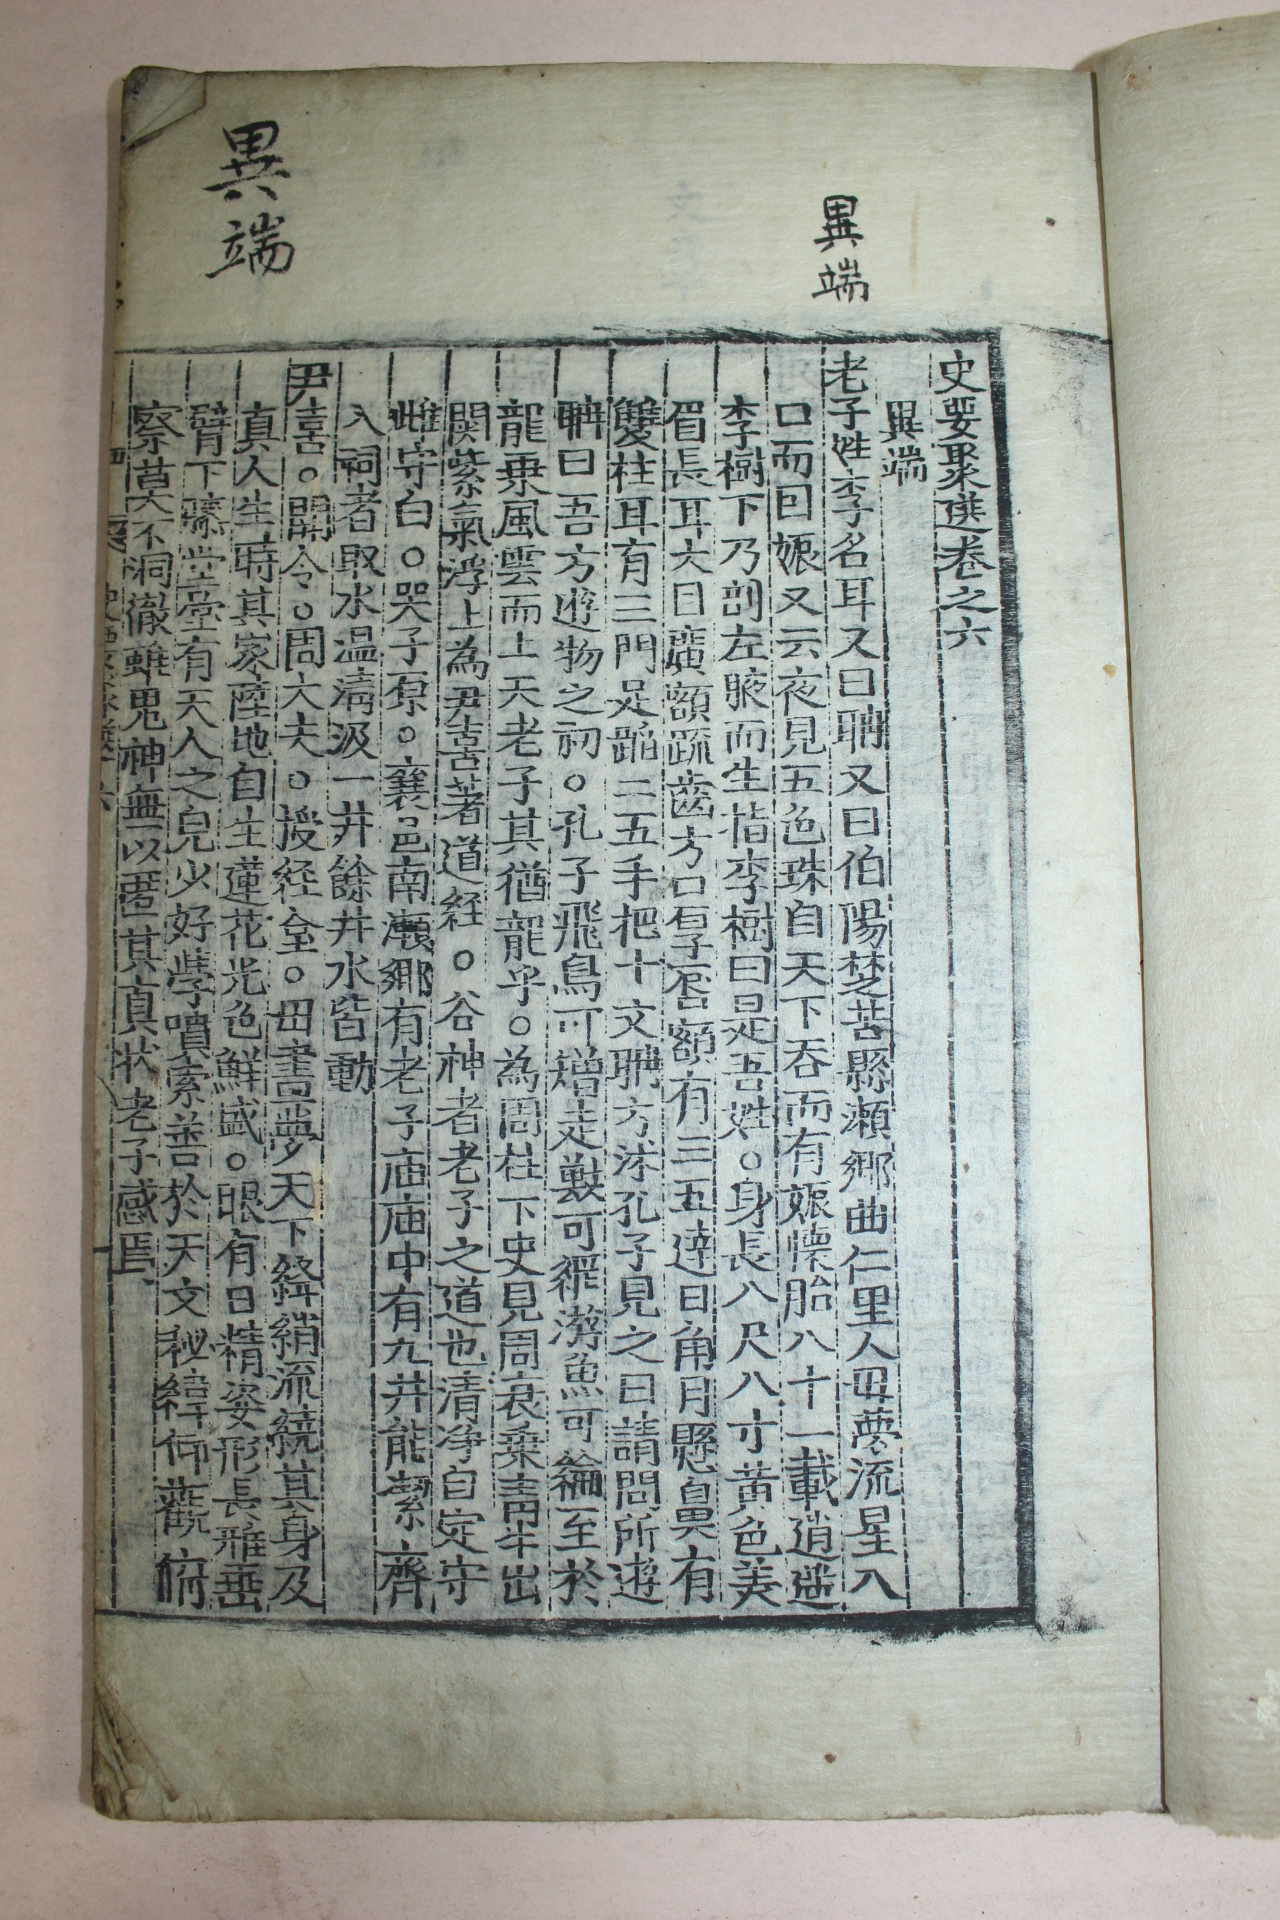 異端
異端
史要聚選卷之六
異端
老子姓李名耳又曰聃又曰伯陽楚苦縣瀨鄉曲仁里人母夢流星入
口而囙娠又云夜見五色珠自天下吞而有娠懷胎八十一載逍遥
李樹下乃剖左腋而生指李樹曰是吾姓○身長八尺八寸黃色美
眉長耳大目廣額疏齒方口厚唇額有三五達日角月懸鼻有
雙柱耳有三門足蹈二五手把十文聃方沐孔子見之曰請問所遊
聃曰吾方遊物之初○孔子飛鳥可矰走獸可羅游魚可綸至於
龍乗風雲而上天老子其猶龍乎○為周柱下史見周衰乗靑牛出
関紫氣浮上為尹喜著道経○谷神者老子之道也清净自定守
雌守白○哭子原○襄邑南瀨鄉有老子庙庙中有九井能㓗齊
入祠者取水温淸汲一井餘井水皆動
尹喜○関令○周大夫○授経全○母晝夢天下絳綃流繞其身及
真人生時其家陸地自生蓮花光色鮮盛○眼有日精姿形長雅垂
臂下膝堂堂有天人之皃少好学墳索善於天文秘緯仰觀俯
察莫不洞徹雖鬼神無以匿其真狀老子感焉